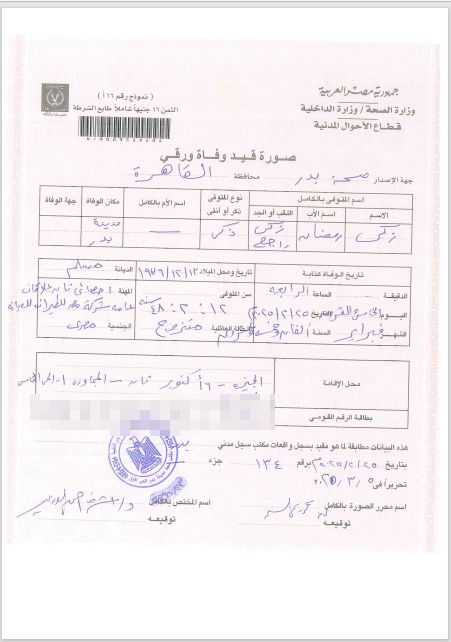 جمهورية مصر العربية
وزارة الصحة / وزارة الداخلية
قطاع الأحوال المدنية
( نموذج رقم ١٦ أ )
الثمن ١٦ جنيهاً شاملاً طابع الشرطة
صورة قيد وفاة ورقي
جهة الإصدار صحة بدر محافظة القاهرة
اسم المتوفى بالكامل
الاسم اسم الأب اللقب أو الجد
نوع المتوفى ذكر أو أنثى
اسم الأم بالكامل
مكان الوفاة
جهة الوفاة
زكى رمضان زكى راجح ذكر — مدينة بدر
تاريخ الوفاة كتابة
تاريخ ومحل الميلاد ١٩٧٦/١٢/١٣
الديانة مسلم
الدقيقة الساعة الرابعة
سن المتوفى ١٢ : ٢ : ٤٨ سنة
المهنة
عامه شركة مصر للطيران
اليوم التاريخ ٢٠٢٥/٢/٢٥
الشهر فبراير السنة
الحالة العائلية متزوج
الجنسية مصرى
محل الإقامة
الجيزه – ٦ أكتوبر – المجاوره
بطاقة الرقم القومي
هذه البيانات مطابقة لما هو مقيد بسجل واقعات مكتب سجل مدني بدر
بتاريخ ٢٠٢٥/٢/٢٥ برقم ١٣٤ جزء —
تحريراً في ٢٠٢٥/٣/٥
اسم محرر الصورة بالكامل
توقيعه
اسم المختص بالكامل
توقيعه